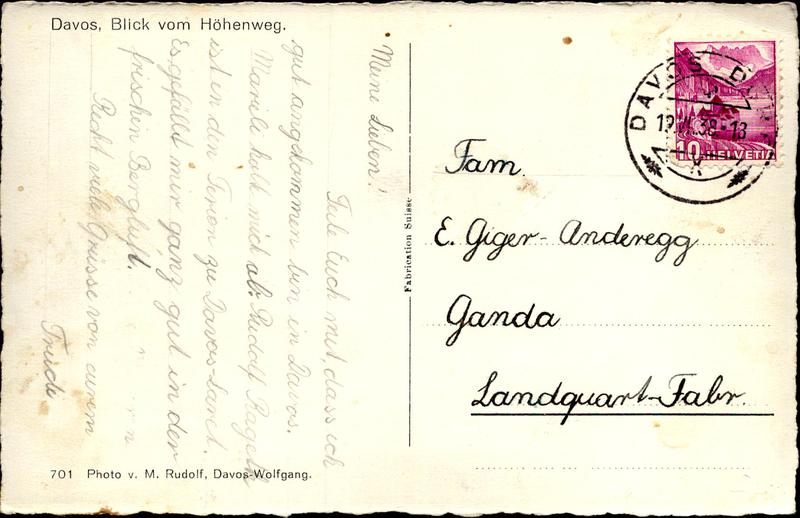 Davos, Blick vom Höhenweg.
Meine Lieben!
Teile Euch mit, dass ich
gut angekommen bin in Davos.
holt mich ab. Rudolf
ist in den Ferien zu Davos-
Es gefällt mir ganz gut in der
frischen Bergluft.
Recht viele Grüsse von eurem
Trudi
701 Photo v. M. Rudolf, Davos-Wolfgang.
Fabrication Suisse
DAVOS D
38-18
10 HELVETIA
Fam.
E. Giger-Anderegg
Ganda
Landquart-Fabr.